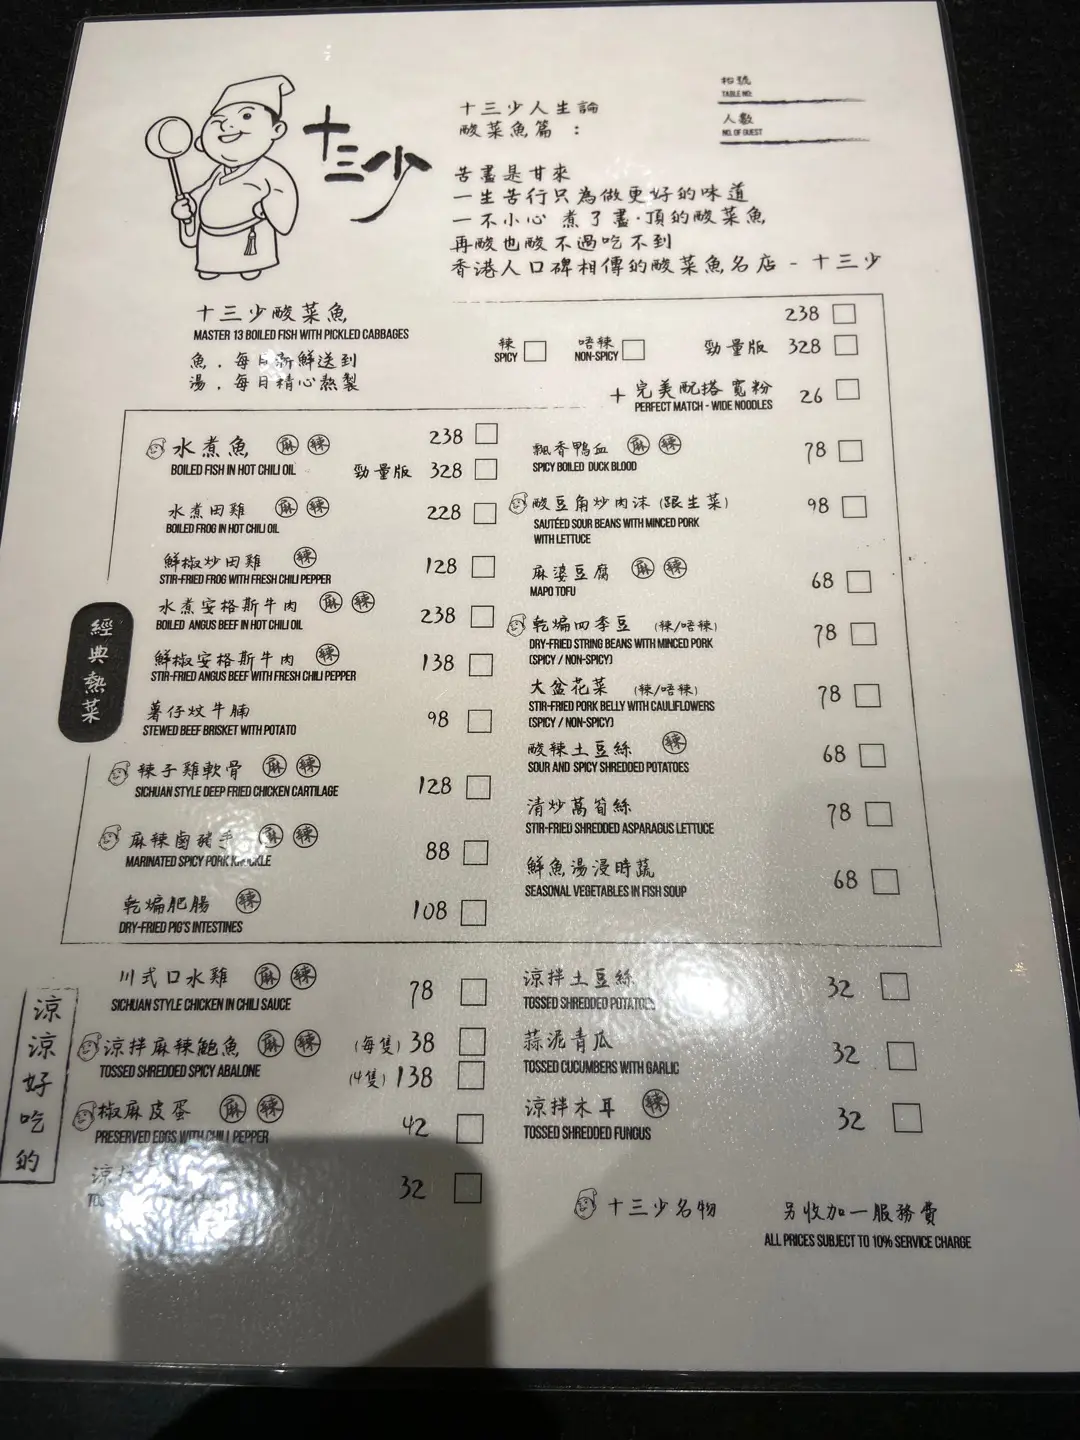 十三少
十三少人生論
酸菜魚篇：
枱號
TABLE NO:
人數
NO. OF GUEST
苦盡是甘來
一生苦行只為做更好的味道
一不小心 煮了盡·頂的酸菜魚
再酸也酸不過吃不到
香港人口碑相傳的酸菜魚名店 - 十三少
十三少酸菜魚 238
MASTER 13 BOILED FISH WITH PICKLED CABBAGES
辣 唔辣 勁量版 328
SPICY NON-SPICY
魚．每日新鮮送到
湯．每日精心熬製
+ 完美配搭 寬粉 26
PERFECT MATCH - WIDE NOODLES
經典熱菜
水煮魚 麻 辣 238
BOILED FISH IN HOT CHILI OIL 勁量版 328
水煮田雞 麻 辣 228
BOILED FROG IN HOT CHILI OIL
鮮椒炒田雞 辣 128
STIR-FRIED FROG WITH FRESH CHILI PEPPER
水煮安格斯牛肉 麻 辣 238
BOILED ANGUS BEEF IN HOT CHILI OIL
鮮椒安格斯牛肉 辣 138
STIR-FRIED ANGUS BEEF WITH FRESH CHILI PEPPER
薯仔炆牛腩 98
STEWED BEEF BRISKET WITH POTATO
辣子雞軟骨 麻 辣 128
SICHUAN STYLE DEEP FRIED CHICKEN CARTILAGE
麻辣鹵豬手 麻 辣 88
MARINATED SPICY PORK KNUCKLE
乾煸肥腸 辣 108
DRY-FRIED PIG'S INTESTINES
飄香鴨血 麻 辣 78
SPICY BOILED DUCK BLOOD
酸豆角炒肉沫 (跟生菜) 98
SAUTÉED SOUR BEANS WITH MINCED PORK
WITH LETTUCE
麻婆豆腐 麻 辣 68
MAPO TOFU
乾煸四季豆 (辣/唔辣) 78
DRY-FRIED STRING BEANS WITH MINCED PORK
(SPICY / NON-SPICY)
大盆花菜 (辣/唔辣) 78
STIR-FRIED PORK BELLY WITH CAULIFLOWERS
(SPICY / NON-SPICY)
酸辣土豆絲 辣 68
SOUR AND SPICY SHREDDED POTATOES
清炒萵筍絲 78
STIR-FRIED SHREDDED ASPARAGUS LETTUCE
鮮魚湯浸時蔬 68
SEASONAL VEGETABLES IN FISH SOUP
涼涼好吃的
川式口水雞 麻 辣 78
SICHUAN STYLE CHICKEN IN CHILI SAUCE
涼拌麻辣鮑魚 麻 辣 (每隻) 38
TOSSED SHREDDED SPICY ABALONE (4隻) 138
椒麻皮蛋 麻 辣 42
PRESERVED EGGS WITH CHILI PEPPER
涼 32
涼拌土豆絲 32
TOSSED SHREDDED POTATOES
蒜泥青瓜 32
TOSSED CUCUMBERS WITH GARLIC
涼拌木耳 辣 32
TOSSED SHREDDED FUNGUS
十三少名物 另收加一服務費
ALL PRICES SUBJECT TO 10% SERVICE CHARGE